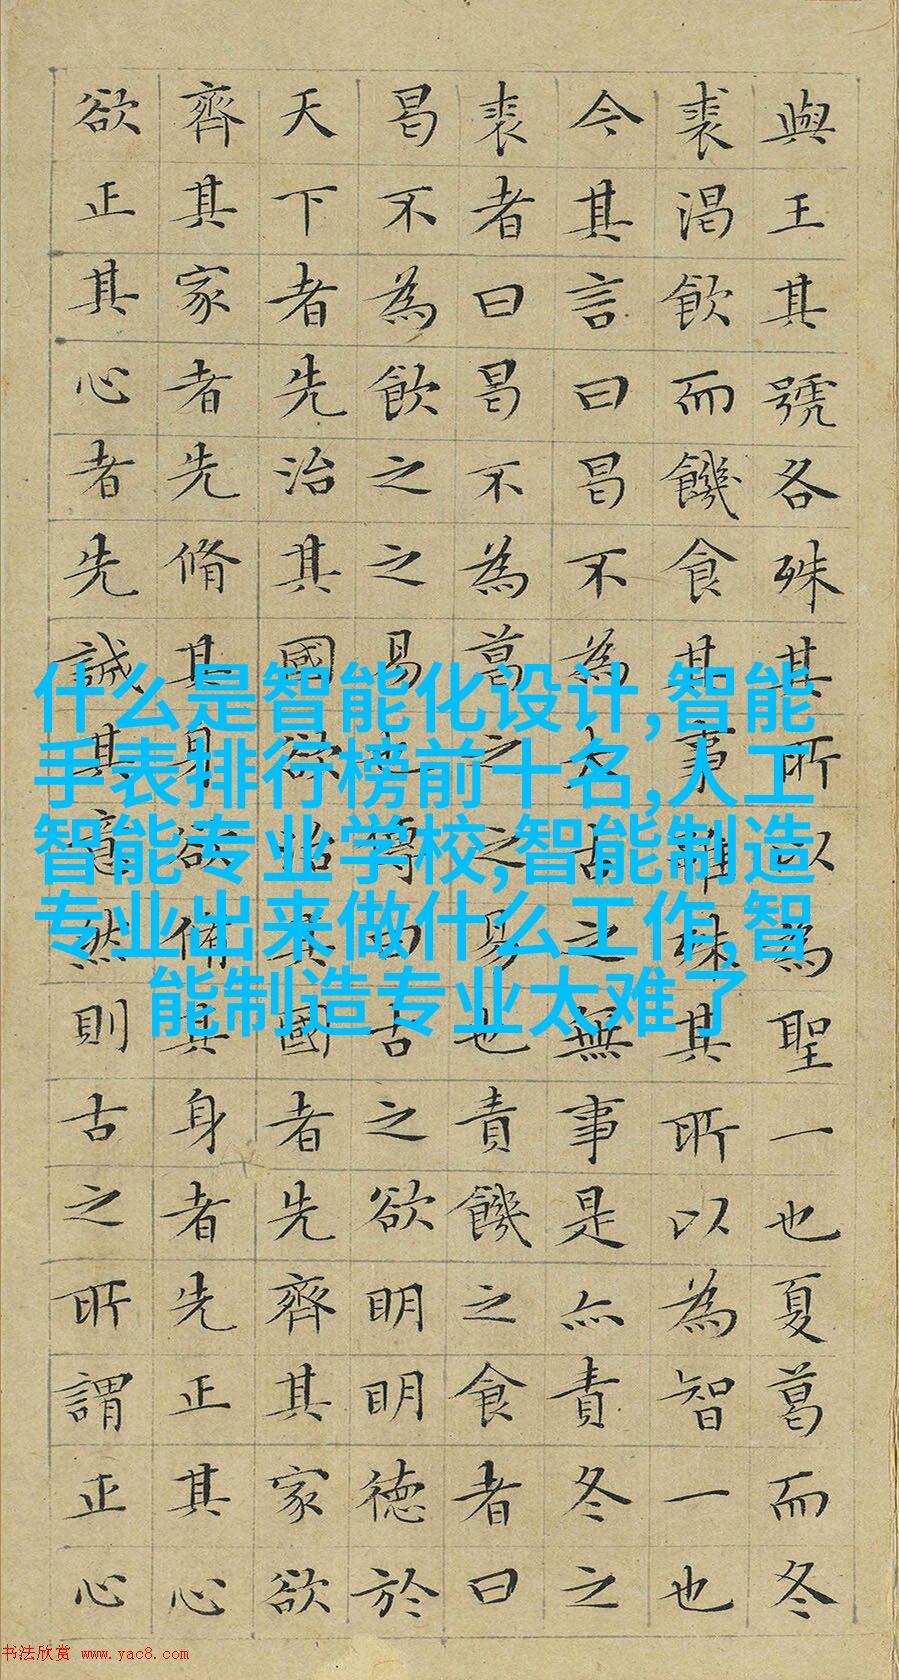 與王其號各殊其所以為聖一也夏葛而冬
裘渴飲而饑食其事雖殊其所以為智一也
今其言曰曷不為太古之無事是亦責冬之
裘者曰曷不為葛之之易也責饑之食者曰
曷不為飲之之易也傳曰古之欲明明德於
天下者先治其國欲治其國者先齊其家欲
齊其家者先脩其身欲脩其身者先正其心
欲正其心者先誠其意然則古之所謂正心
什么是智能化设计,智能
手表排行榜前十名,人工
智能专业学校,智能制造
专业出来做什么工作,智
能制造专业太难了
书法欣赏 www.yac8.com